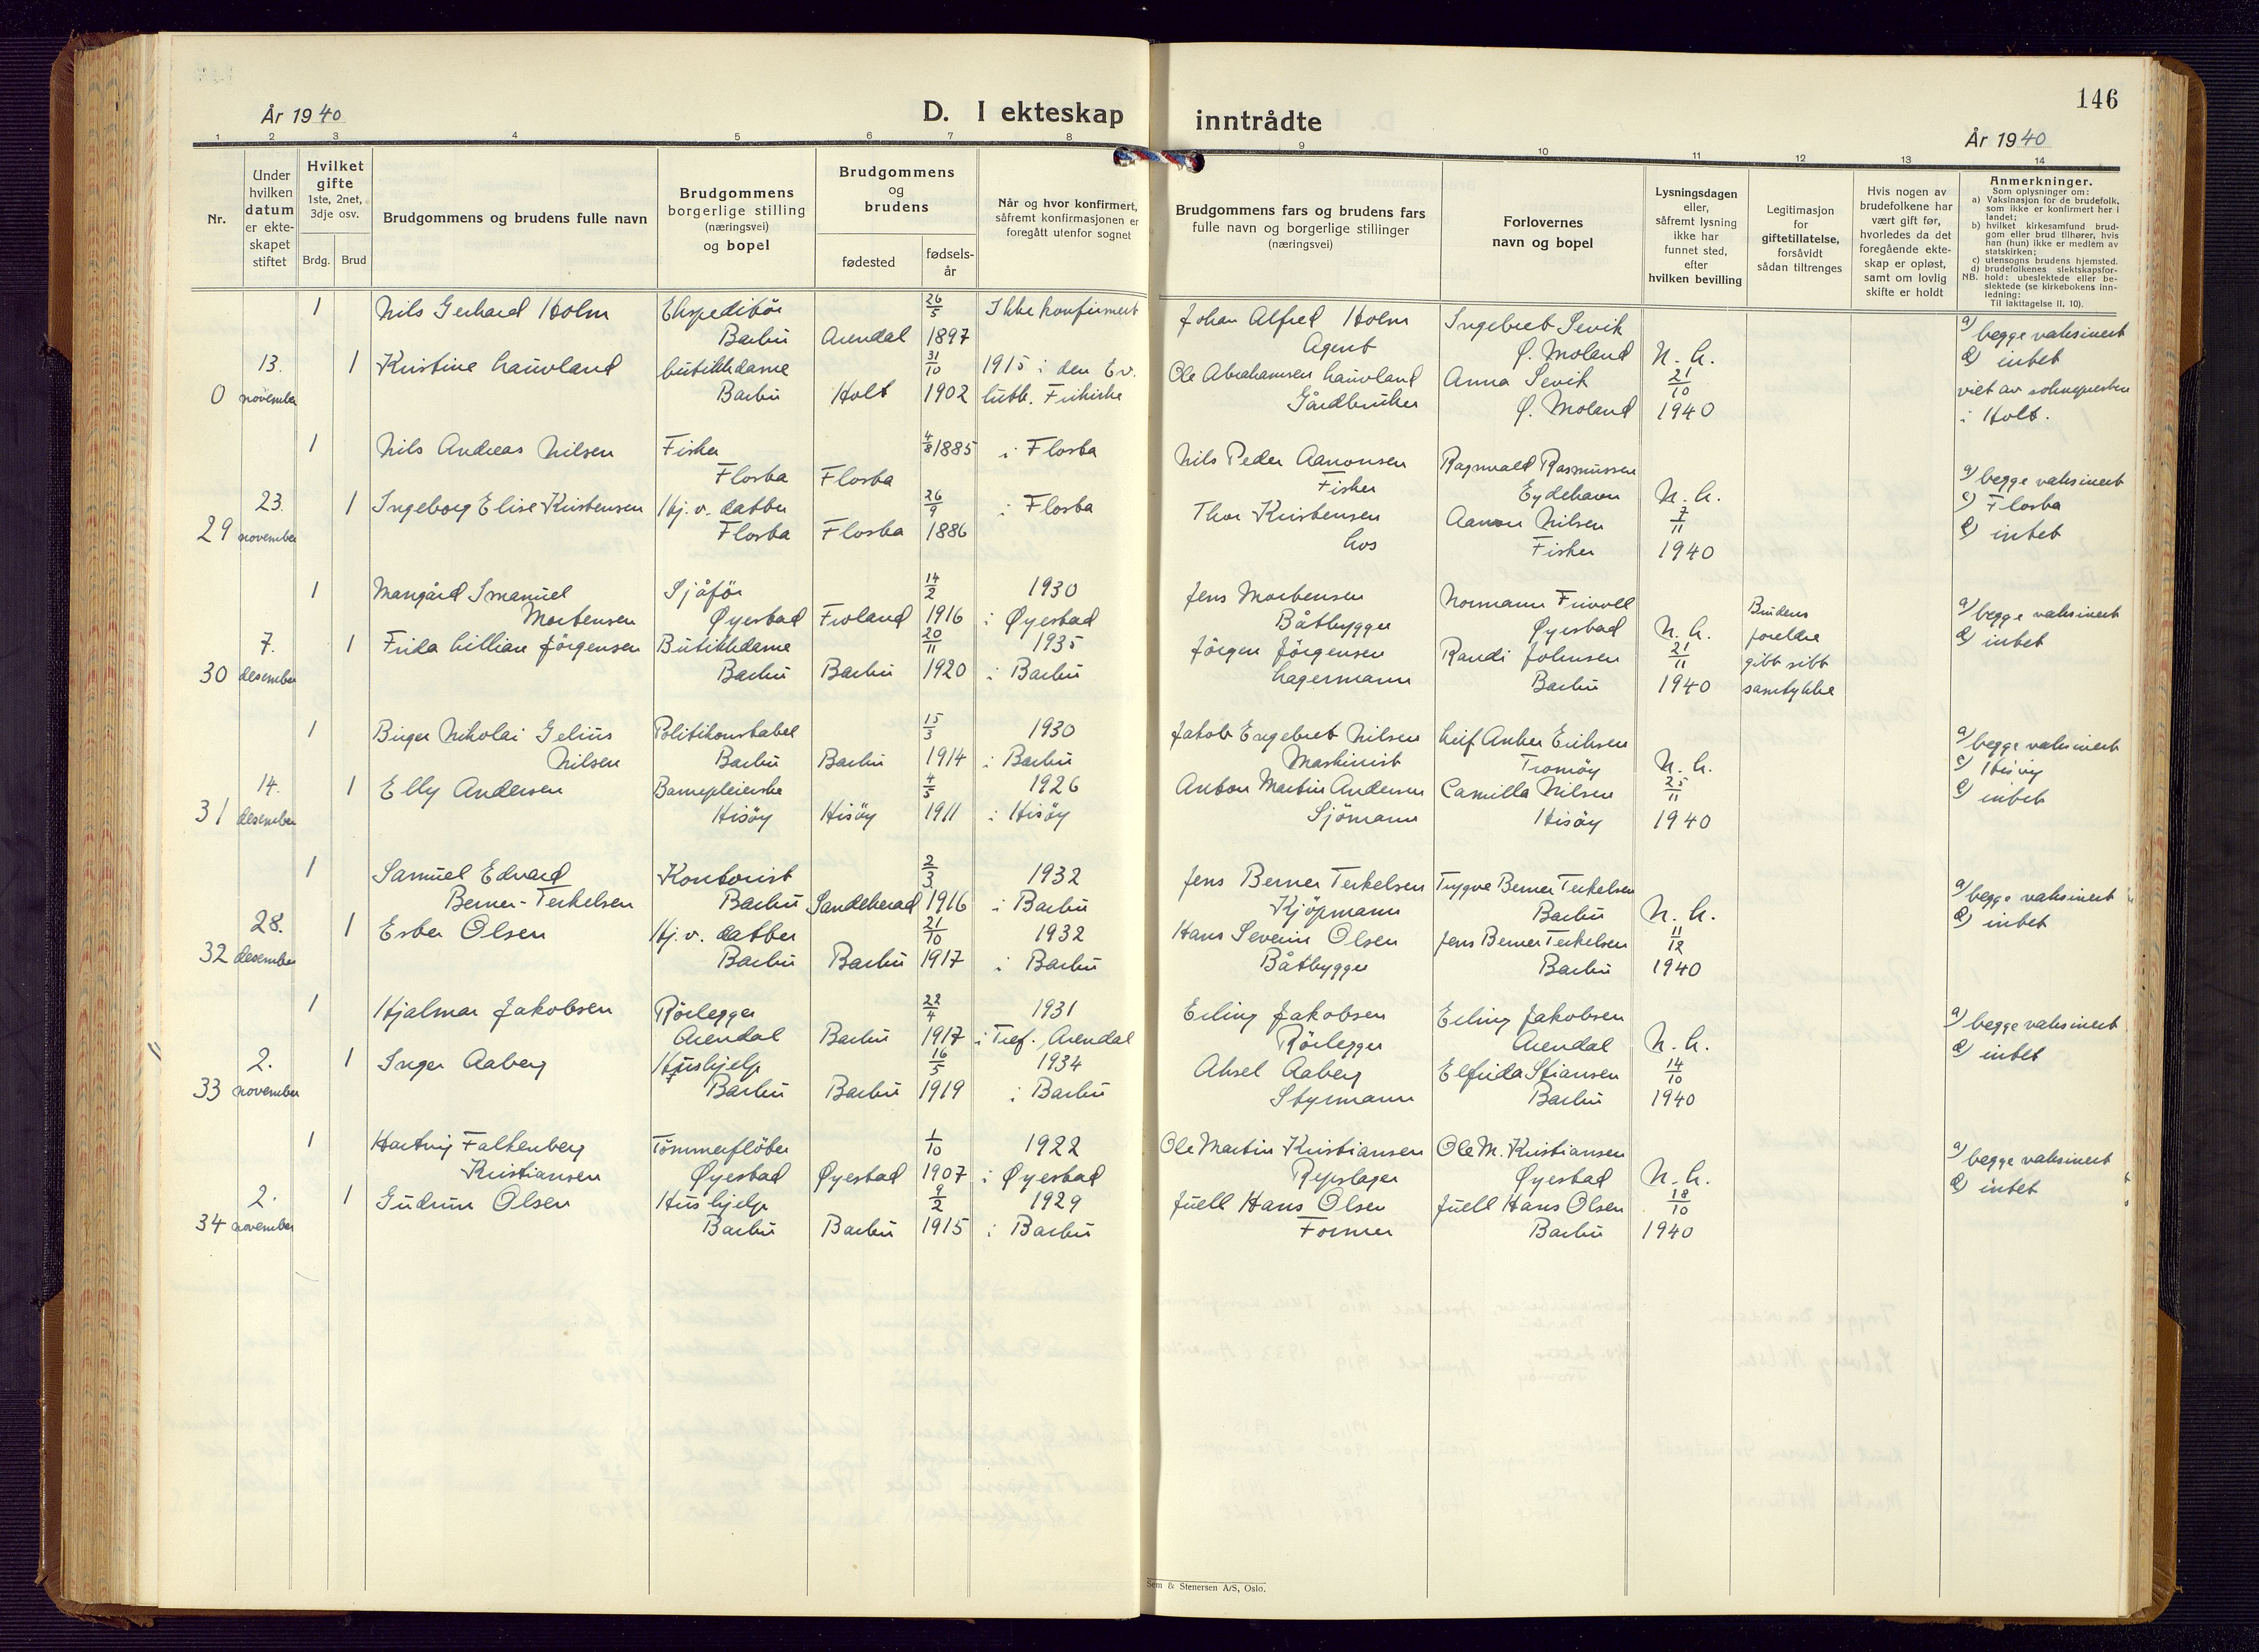 År 1940
D. I ekteskap
inntrådte
146
År 1940
1 2 3 4 5 6 7 8 9 10 11 12 13 14
Nr.
Under hvilken datum er ekteskapet stiftet
Hvilket gifte 1ste, 2net, 3dje osv.
Brdg. Brud
Brudgommens og brudens fulle navn
Brudgommens borgerlige stilling (næringsvei) og bopel
Brudgommens og brudens
fødested
fødselsår
Når og hvor konfirmert, såfremt konfirmasjonen er foregått utenfor sognet
Brudgommens fars og brudens fars fulle navn og borgerlige stillinger (næringsvei)
Forlovernes navn og bopel
Lysningsdagen eller, såfremt lysning ikke har funnet sted, efter hvilken bevilling
Legitimasjon for giftetillatelse, forsåvidt sådan tiltrenges
Hvis nogen av brudefolkene har vært gift før, hvorledes da det foregående ekteskap er opløst, samt om lovlig skifte er holdt
Anmerkninger.
Som oplysninger om:
a) Vaksinasjon for de brudefolk, som ikke er konfirmert her i landet;
b) hvilket kirkesamfund brudgom eller brud tilhører, hvis han (hun) ikke er medlem av statskirken;
c) utensogns brudens hjemsted.
d) brudefolkenes slektskapsforhold: ubeslektede eller beslektede (se kirkebokens innledning:
NB.
Til iakttagelse II, 10).
1 Nils Gerhard Holm Ekspeditör 26/5 Ikke konfirmert Johan Alfred Holm Ingebret Sevik a) begge vaksinert
Barbu Arendal 1897 Agent Ø. Moland N. h. d) intet
13. 1 Kristine Lauvland butikkdame 31/10 1915 i den Ev. Ole Abrahamsen Lauvland Anna Sevik 21/10 viet av soknepresten
0 november Barbu Holt 1902 luth. Frikirke Gårdbruker Ø. Moland 1940 i Holt.
1 Nils Andreas Nilsen Fisker 4/8 1885 i Flosta Nils Peder Aanonsen Ragnvald Rasmussen a) begge vaksinert
Flosta Flosta Fisker Eydehavn N. h. c) Flosta
23. 1 Ingeborg Elise Kristensen Hj. v. datter 26/9 i Flosta Thor Kristensen Aanon Nilsen 7/11 d) intet
29 november Flosta Flosta 1886 Los Fisker 1940
1 Mangård Imanuel Sjåför 14/2 1930 Jens Mortensen Normann Frivoll Brudens a) begge vaksinert
Mortensen Øyestad Froland 1916 i Øyestad Båtbygger Øyestad N. h. foreldre d) intet
7. 1 Frida Lillian Jörgensen Butikkdame 20/11 1935 Jörgen Jörgensen Randi Johnsen 21/11 gitt sitt
30 desember Barbu Barbu 1920 i Barbu Lagermann Barbu 1940 samtykke
1 Birger Nikolai Gelius Politikonstabel 15/3 1930 Jakob Engebret Nilsen Leif Anker Eriksen a) begge vaksinert
Nilsen Barbu Barbu 1914 i Barbu Maskinist Tromöy N. h. c) Hisöy
14. 1 Elly Andersen Barnepleierske 4/5 1926 Anton Martin Andersen Camilla Nilsen 25/11 d) intet
31 desember Hisöy Hisöy 1911 i Hisöy Sjömann Hisöy 1940
1 Samuel Edvard Kontorist 2/3 1932 Jens Berner Terkelsen Trygve Berner Terkelsen a) begge vaksinert
Berner-Terkelsen Barbu Sandeherad 1916 i Barbu Kjöpmann Barbu N. h. d) intet
28. 1 Ester Olsen Hj. v. datter 21/10 1932 Hans Severin Olsen Jens Berner Terkelsen 11/12
32 desember Barbu Barbu 1917 i Barbu Båtbygger Barbu 1940
1 Hjalmar Jakobsen Rörlegger 22/4 1931 Erling Jakobsen Erling Jakobsen a) begge vaksinert
Arendal Barbu 1917 i Tref., Arendal Rörlegger Arendal N. h. d) intet
2. 1 Inger Aaberg Hushjelp 16/5 1934 Aksel Aaberg Elfrida Stiansen 14/10
33 november Barbu Barbu 1919 i Barbu Styrmann Barbu 1940
1 Hartvig Falkenberg Tömmerflöter 1/10 1922 Ole Martin Kristiansen Ole M. Kristiansen a) begge vaksinert
Kristiansen Øyestad Øyestad 1907 i Øyestad Repslager Øyestad N. h. d) intet
2. 1 Gudrun Olsen Hushjelp 9/2 1929 Juell Hans Olsen Juell Hans Olsen 18/10
34 november Barbu Barbu 1915 i Barbu Former Barbu 1940
Sem & Stenersen A/S, Oslo.